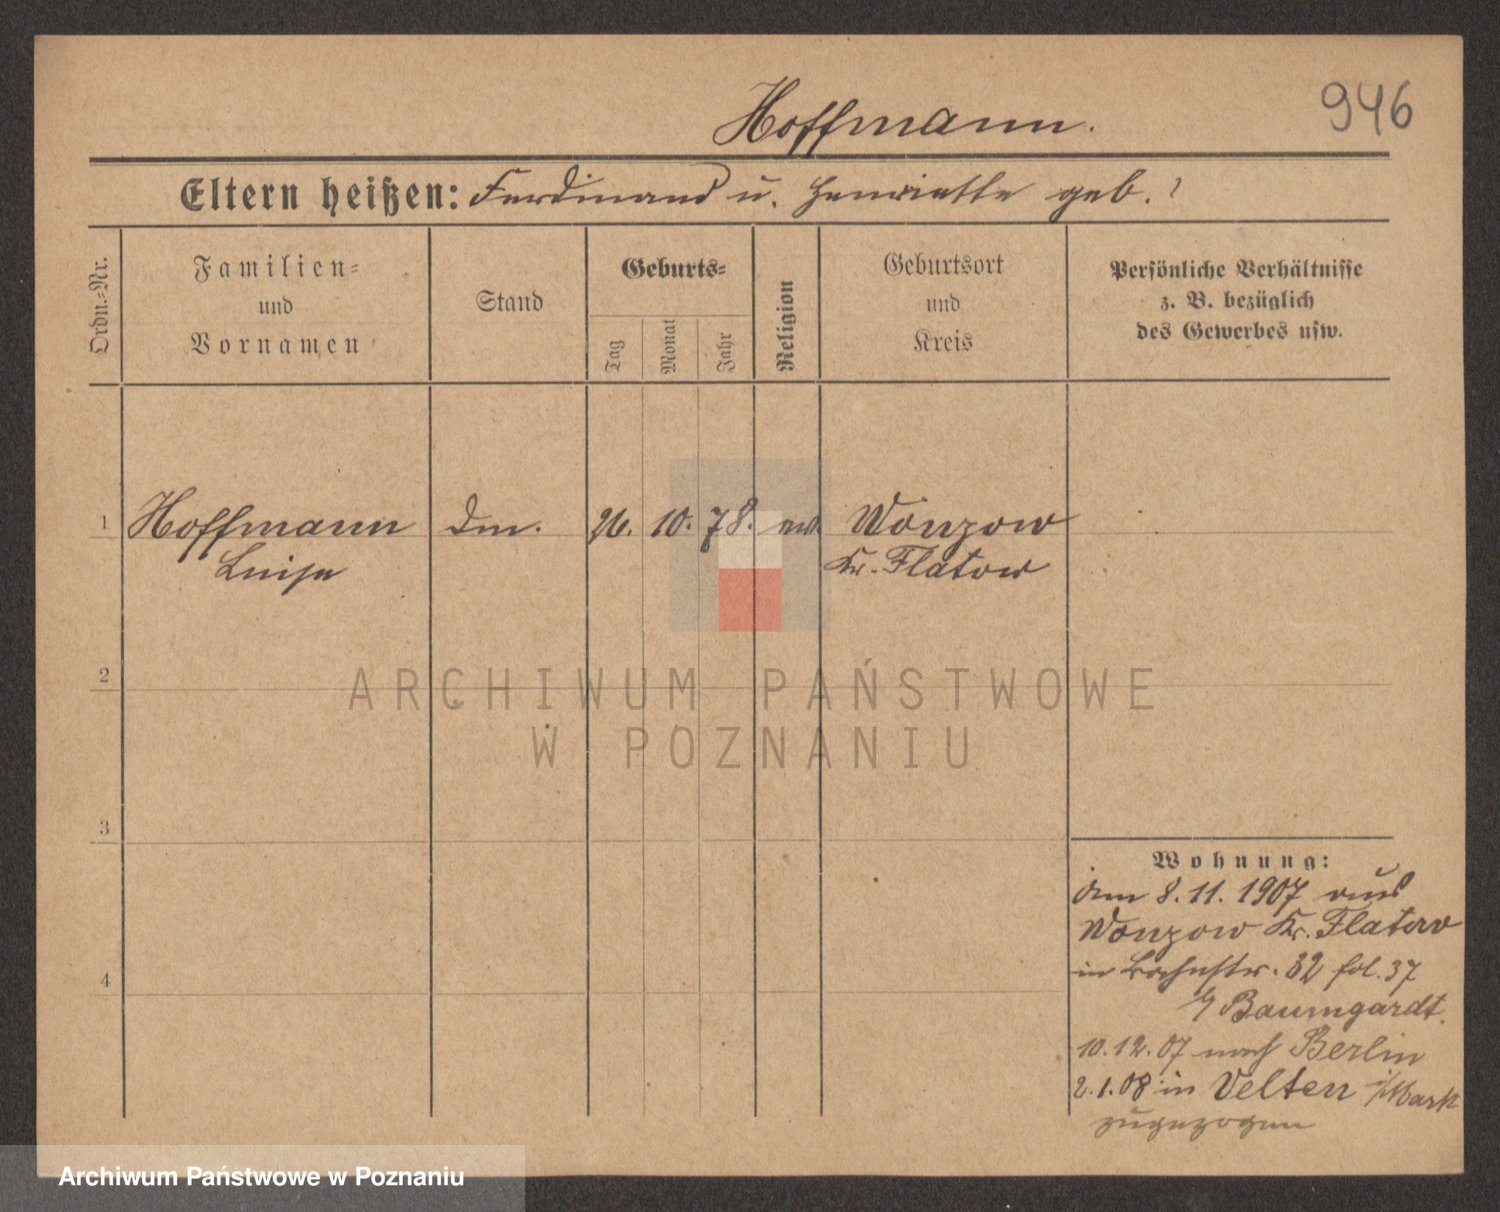 Hoffmann.
946
Eltern heißen: Ferdinand u. Henriette geb. ?
Ordn.-Nr.
Familien-
und
Vornamen
Stand
Geburts-
Tag
Monat
Jahr
Religion
Geburtsort
und
Kreis
Persönliche Verhältnisse
z. B. bezüglich
des Gewerbes usw.
1 Hoffmann 10. 78. ev. Wonzow
Luise Kr. Flatow
2
3
4
Wohnung:
am 8.11.1907 aus
Wonzow Kr. Flatow
in 32 fol. 37
b/ Baumgardt.
10.12.07 nach Berlin
2.1.08 in Velten i/Mark
zugezogen
ARCHIWUM PAŃSTWOWE
W POZNANIU
Archiwum Państwowe w Poznaniu